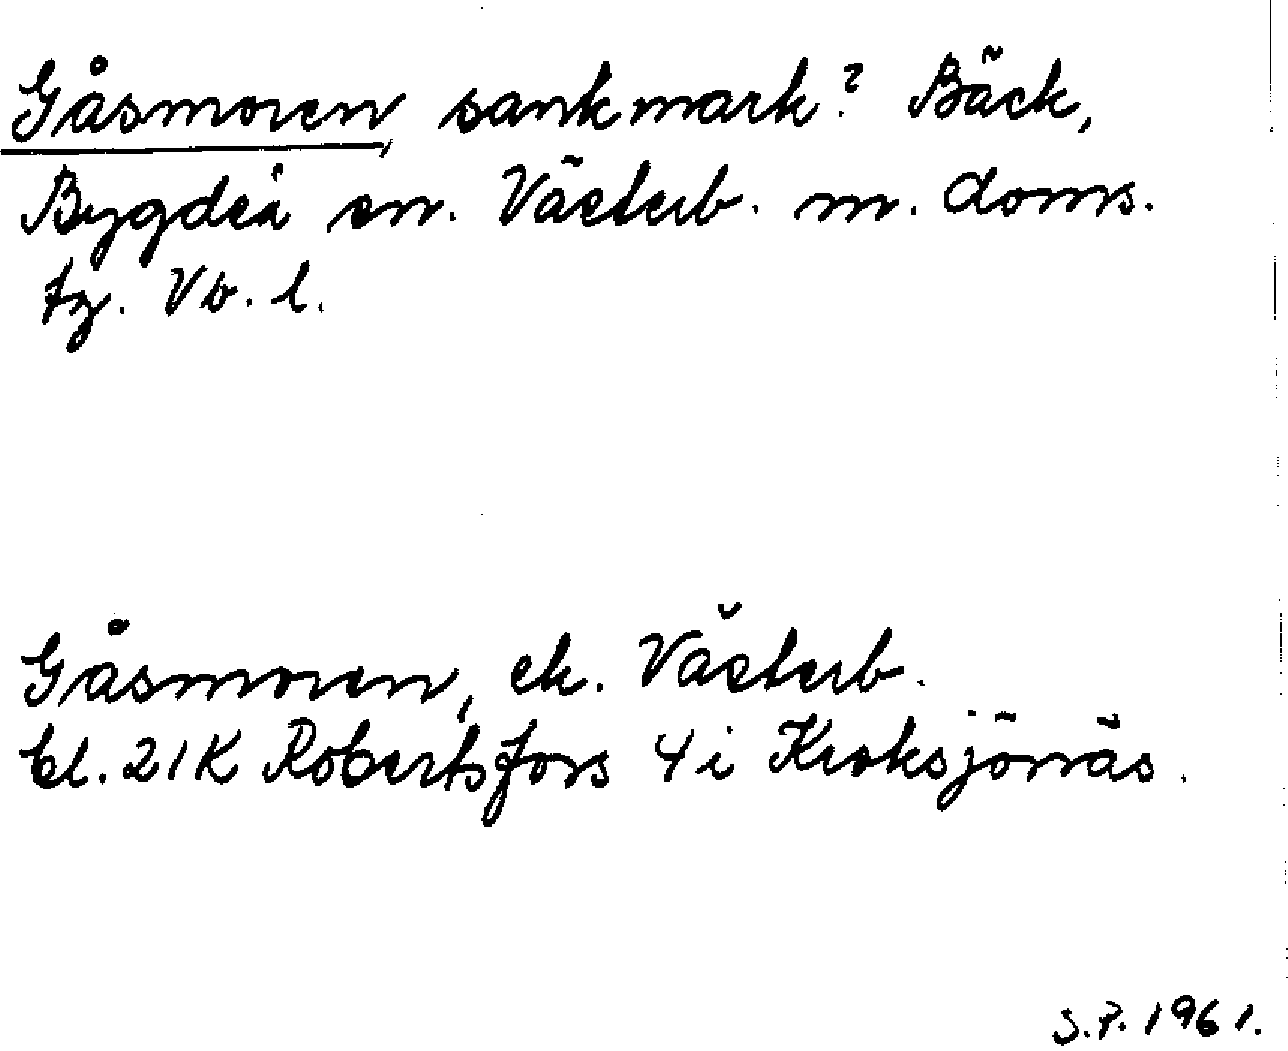 Gåsmoren, sankmark? Bäck,
Bygdeå sn. Västerb. m. doms.
tg. Vb. l.
Gåsmoren, ek. Västerb.
bl. 21K Robertsfors 4i Kroksjönäs.
S.P. 1961.